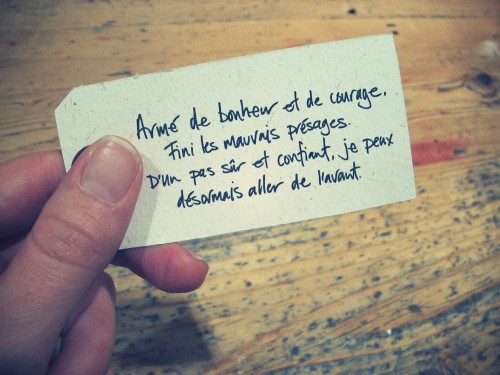 Armé de bonheur et de courage.
Fini les mauvais présages.
D'un pas sûr et confiant, je peux
désormais aller de l'avant.